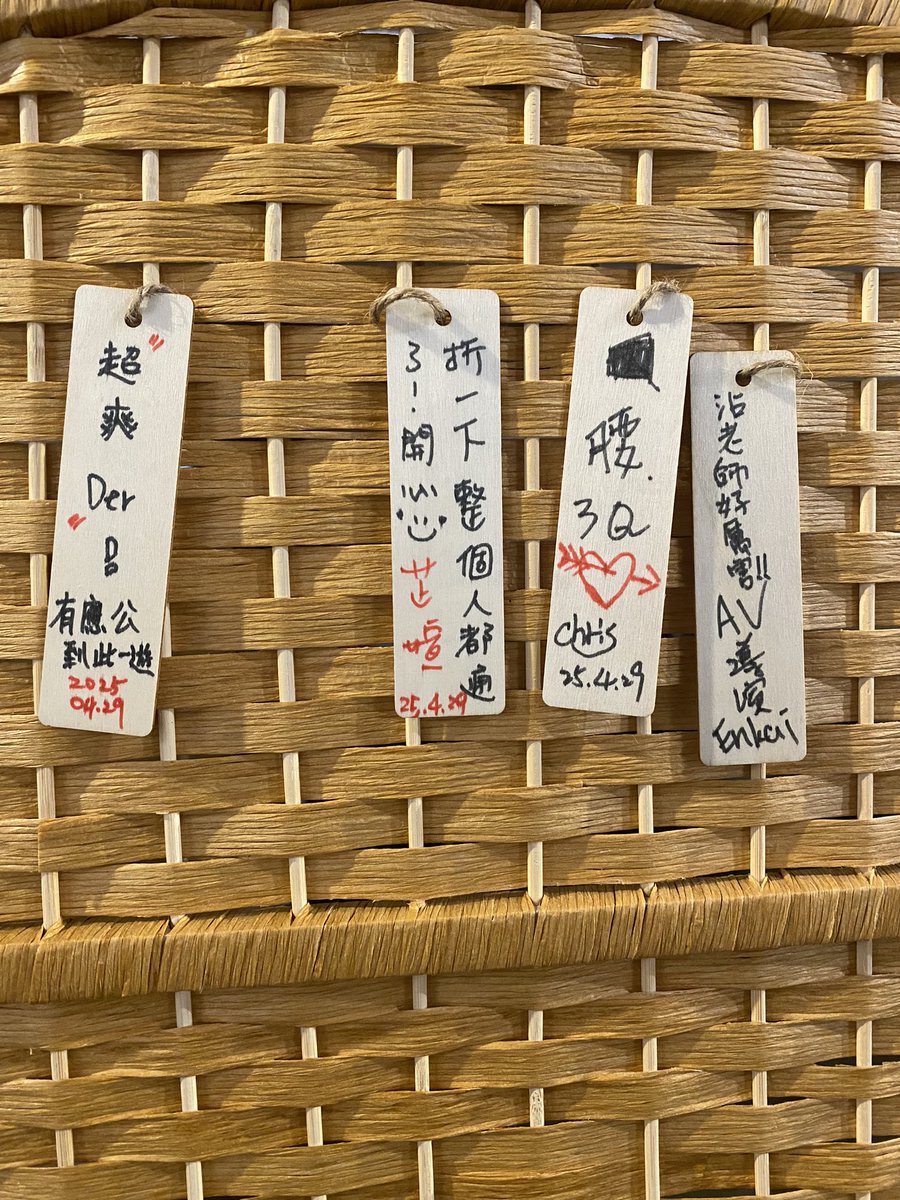 超爽
Der!
有應公
到此一遊
2025
04.29
折一下整個人都通
了!開心
芷萱
25.4.29
腰.
3Q
Chris
25.4.29
沾老師好厲害!!
AV導演
Enkai